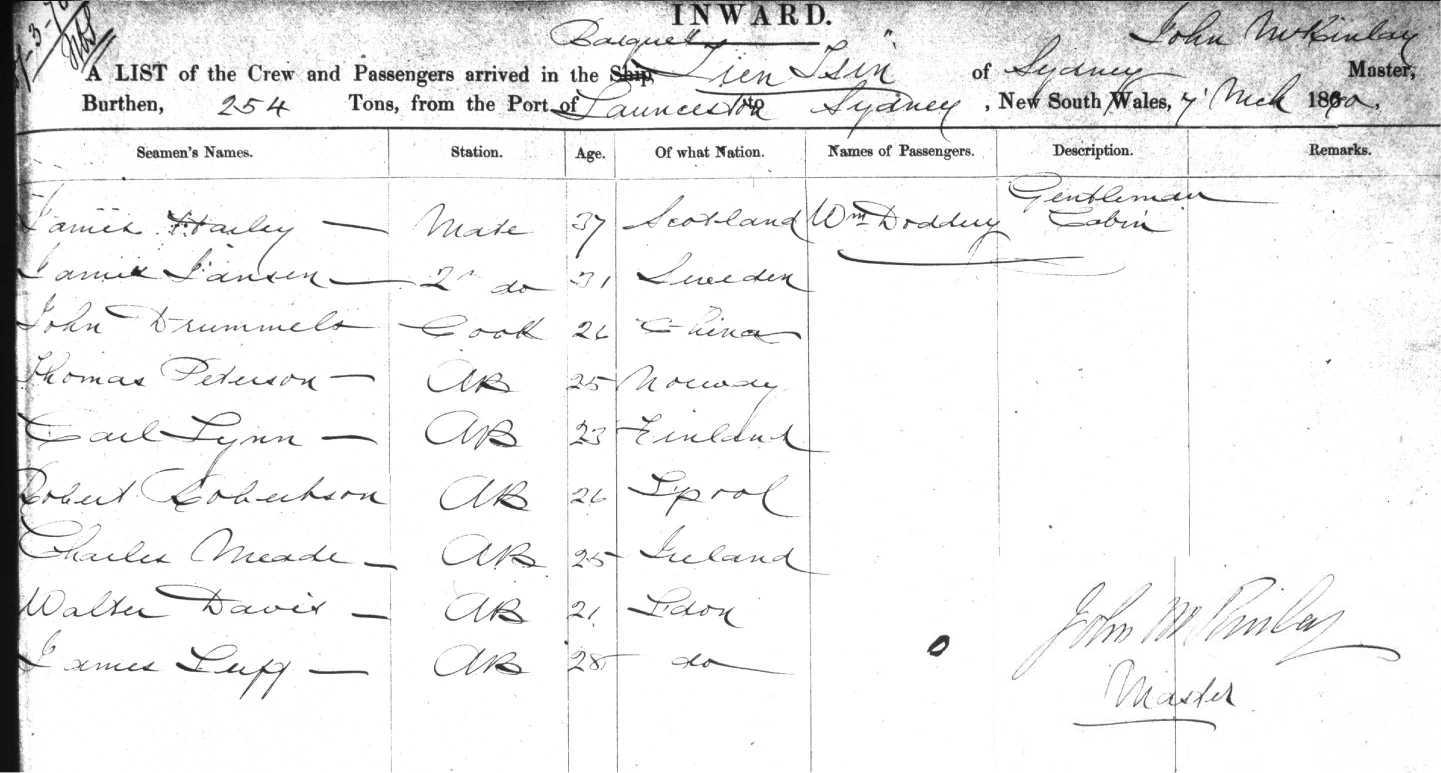 INWARD.
Barque John McKinlay
A LIST of the Crew and Passengers arrived in the Ship, "Tien Tsin" of Sydney Master,
Burthen, 254 Tons, from the Port of Launceston to Sydney, New South Wales, 7 Mch 18
Seamen's Names. Station. Age. Of what Nation. Names of Passengers. Description. Remarks.
Gentleman
James Hasley — Mate 37 Scotland Wm Doddery Cabin
James Jansen — 2n do 31 Sweden
John Drummels Cook 26 China
Thomas Peterson — AB 25 Norway
Carl Lynn — AB 23 Finland
Robert Robertson AB 26 L'pool
Charles Meade — AB 25 Ireland
Walter Davis — AB 21 Ldon
James Luff — AB 28 do
John McKinlay
Master